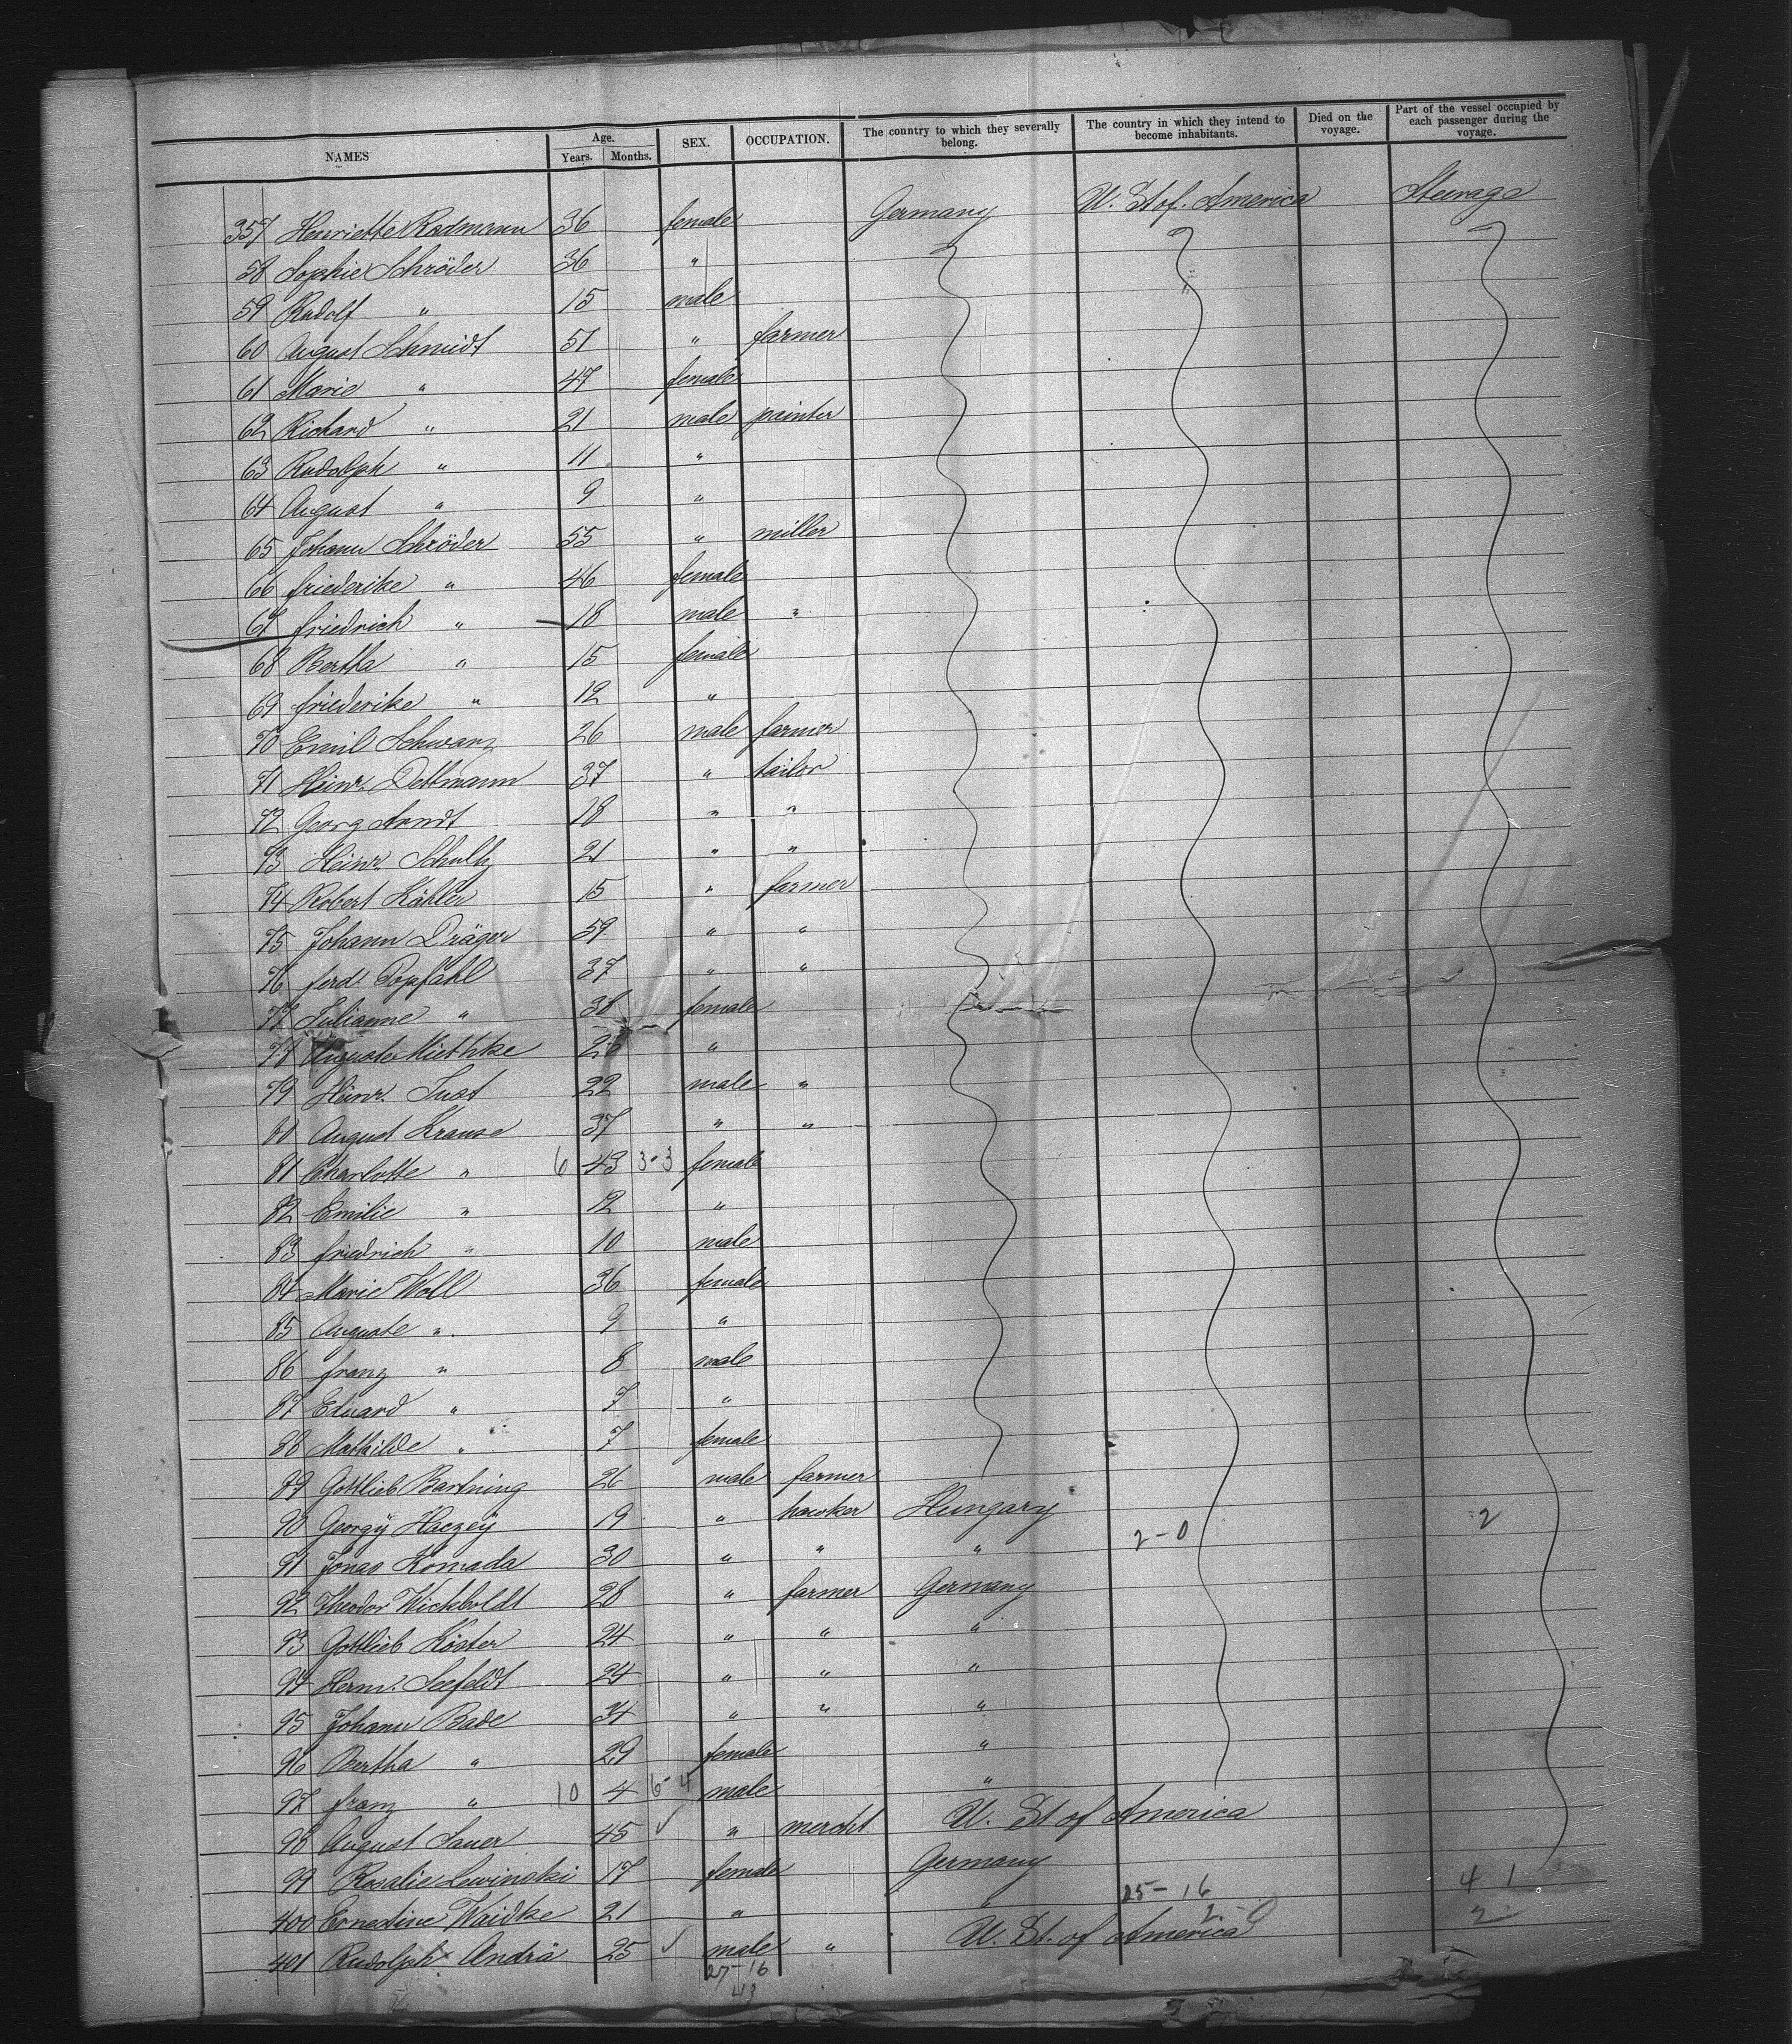 NAMES Age. Years. Months. SEX. OCCUPATION. The country to which they severally belong. The country in which they intend to become inhabitants. Died on the voyage. Part of the vessel occupied by each passenger during the voyage.
357 Henriette Radmann 36 female Germany U. St of. America Steerage
58 Sophie Schröder 36 "
59 Rudolf " 15 male
60 August Schmidt 51 " farmer
61 Marie " 47 female
62 Richard " 21 male painter
63 Rudolph " 11 "
64 August " 9 "
65 Johann Schröder 55 " miller
66 friederike " 46 female
67 friedrich " 18 male "
68 Bertha " 15 female
69 friederike " 12 "
70 Emil Schwarz 26 male farmer
71 Heinr. Dettmann 37 " tailor
72 Georg Arndt 18 " "
73 Heinr. Schultz 21 " "
74 Robert Kähler 15 " farmer
75 Johann Dräger 59 " "
76 ferd. Popfahl 37 " "
77 Julianne " 38 female
78 Auguste Miethke "
79 Heinr. Just 22 male "
80 August Krause 37 " "
81 Charlotte " 6 43 3-3 female
82 Emilie " 12 "
83 friedrich " 10 male
84 Marie Woll 36 female
85 Auguste " 9 "
86 franz " 8 male
87 Eduard " 7 "
88 Mathilde " 7 female
89 Gottlieb Bartning 26 male farmer
90 Georgÿ Haczeÿ 19 " hawker Hungary 2-0 2
91 Jonas Komada 30 " " "
92 Theodor Wickboldt 28 " farmer Germany
93 Gottlieb Köster 24 " " "
94 Herm. Seefeldt 24 " " "
95 Johann Bade 34 " " "
96 Bertha " 29 female "
97 franz " 10 4 6-4 male "
98 August Sauer 45 ✓ " mercht. U. St of America
99 Rosalie Lewinski 17 female Germany 25-16 4 1
400 Ernestine Waidke 21 " " 2-0 2
401 Rudolph Andrä 25 ✓ male " U. St. of America
27-16
43